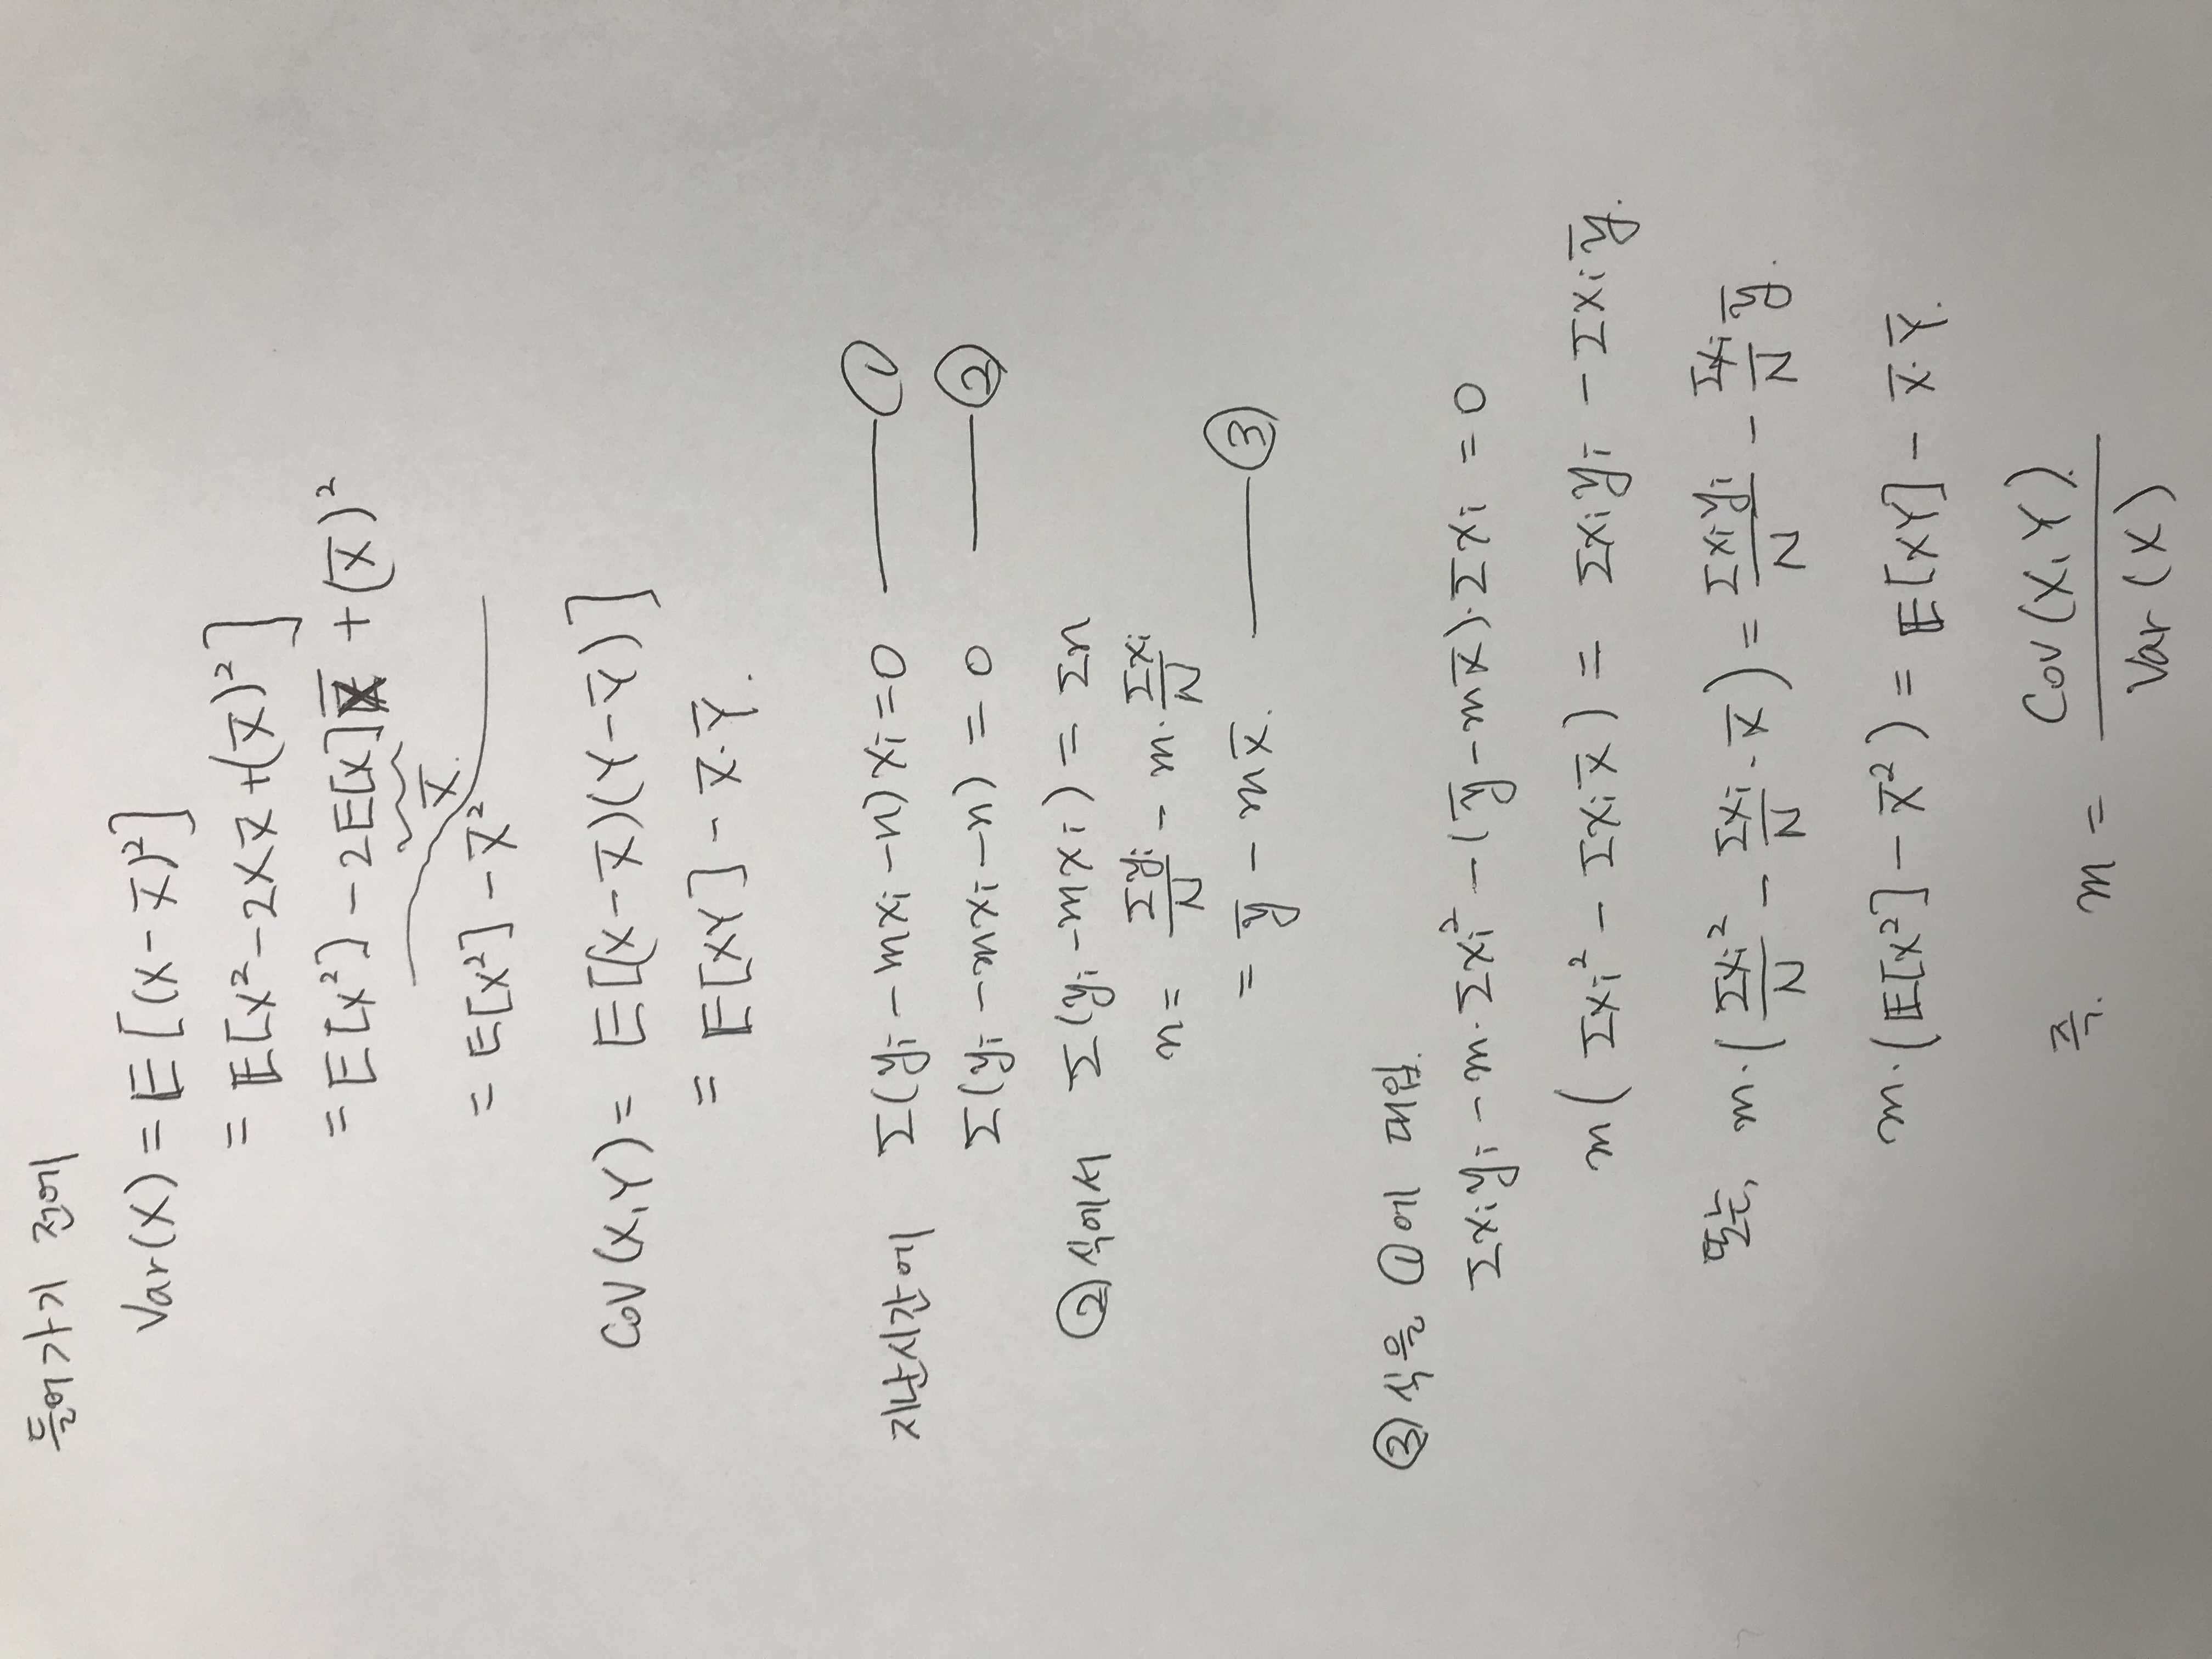 들어가기 전에
Var(X) = E[(X - X̅)²]
= E[X² - 2XX̅ + (X̅)²]
= E[X²] - 2E[X]X̅ + (X̅)²
X̅.
= E[X²] - X̅²
Cov(X,Y) = E[(X - X̅)(Y - Y̅)]
= E[XY] - X̅·Y̅.
지난시간에 Σ(yᵢ - mxᵢ - n)xᵢ = 0 ——— ①
Σ(yᵢ - mxᵢ - n) = 0 ——— ②
②식에서 Σ(yᵢ - mxᵢ) = Σn
n = Σyᵢ/N - m·Σxᵢ/N
= y̅ - mx̅. ——— ③
③식을 ①에 대입.
Σxᵢyᵢ - m·Σxᵢ² - (y̅ - mx̅)·Σxᵢ = 0
m(Σxᵢ² - Σxᵢx̅) = Σxᵢyᵢ - Σxᵢy̅.
또는, m·(Σxᵢ²/N - Σxᵢ/N·x̅) = Σxᵢyᵢ/N - Σxᵢ/N y̅.
m·(E[X²] - X̅²) = E[XY] - X̅·Y̅.
즉. m = Cov(X,Y)/Var(X)